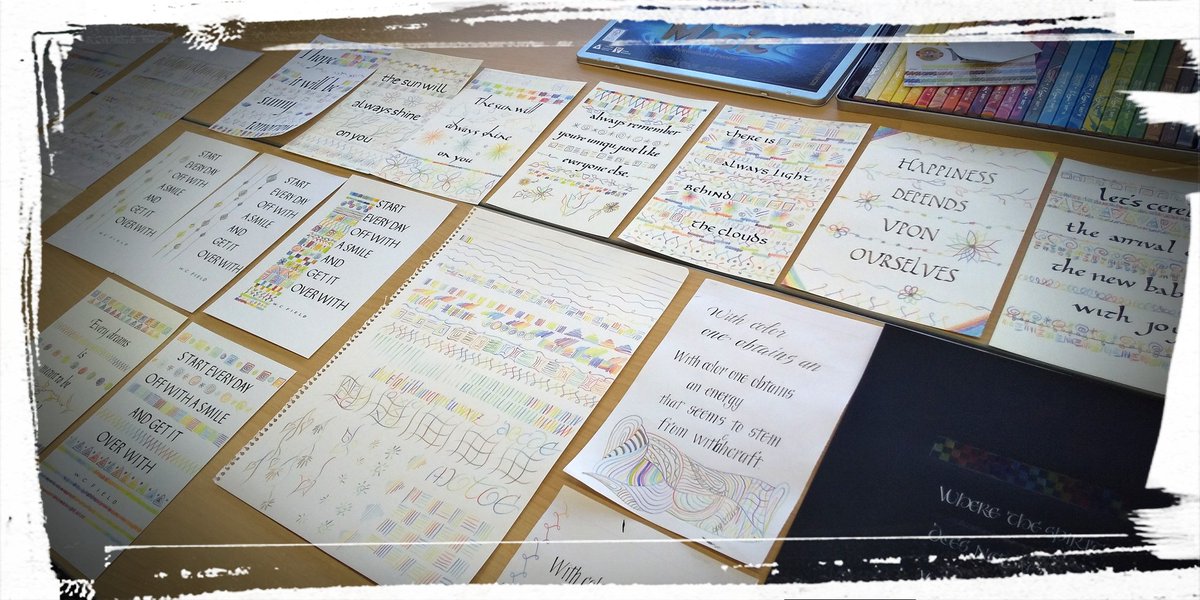 I hope
it will be
sunny
tomorrow
the sun will
always shine
on you
The sun will
always shine
on you
always remember
you're uniqu, just like
everyone else.
there is
always light
behind
the clouds
HAPPINESS
DEPENDS
UPON
OURSELVES
let's
the arrival
the new
with joy
START
EVERY DAY
OFF WITH
A SMILE
AND
GET IT
OVER WITH
W.C. FIELD
START
EVERY DAY
OFF WITH
A SMILE
AND
GET IT
OVER WITH
W.C. FIELD
START
EVERY DAY
OFF WITH
A SMILE
AND
GET IT
OVER WITH
W.C. FIELD
Every dreams
is
meant to be
START EVERY DAY
OFF WITH A SMILE
AND GET IT
OVER WITH
W.C. FIELD
With color
one obtains an
With color one obtains
an energy
that seems to stem
from withhcraft
With
WHERE THE SPIRIT